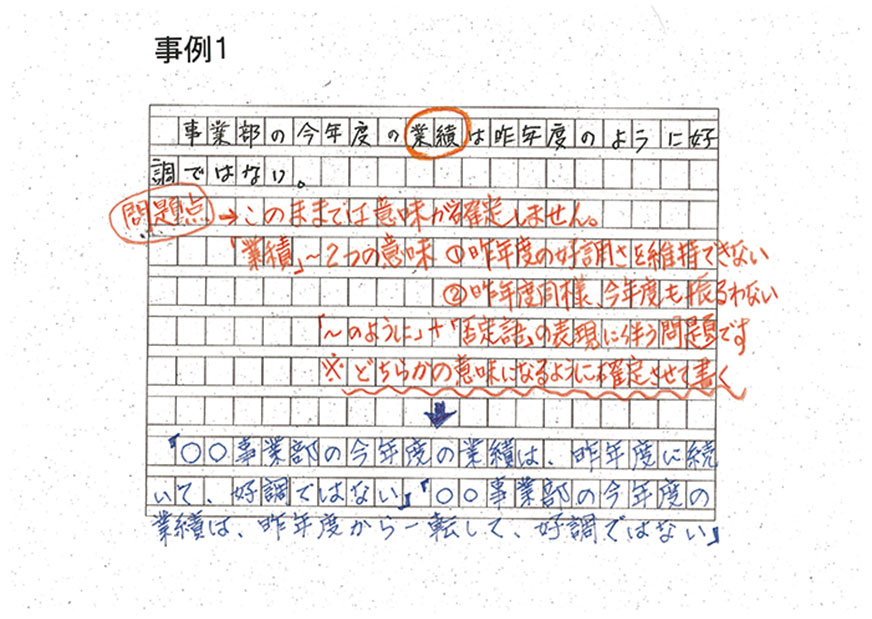 事例1
事業部の今年度の業績は昨年度のように好
調ではない。
問題点→このままでは意味が確定しません。
「業績」~2つの意味 ①昨年度の好調さを維持できない
②昨年度同様、今年度も振るわない
「~のように」+「否定語」の表現に伴う問題です
※どちらかの意味になるように確定させて書く
「○○事業部の今年度の業績は、昨年度に続
いて、好調ではない」「○○事業部の今年度の
業績は、昨年度から一転して、好調ではない」